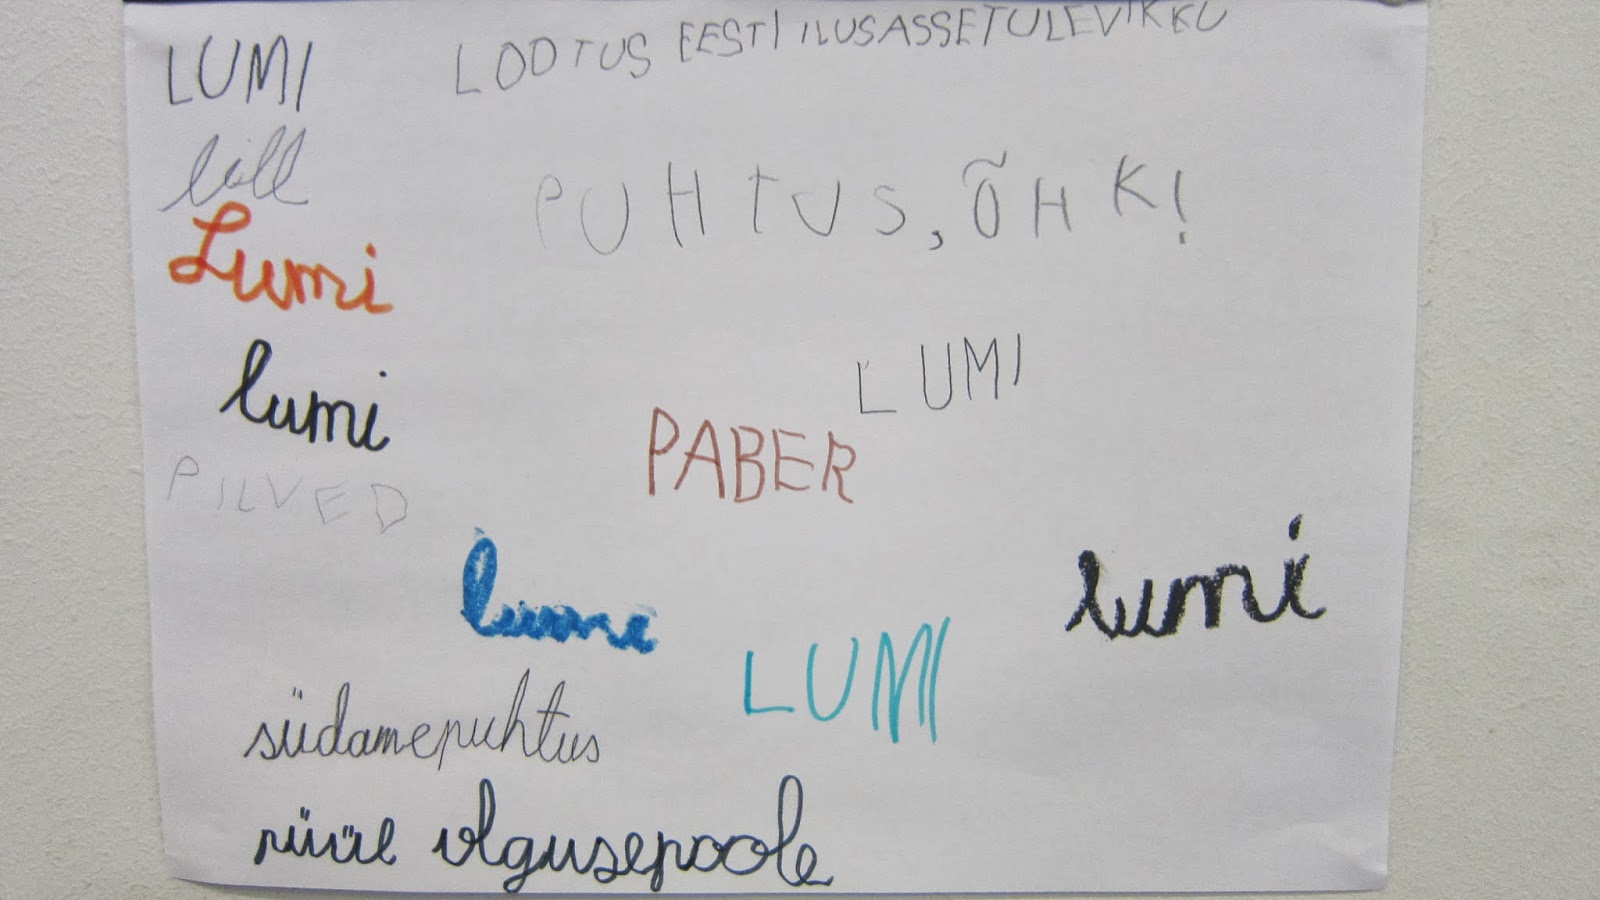 LUMI
LOOTUS EESTI ILUSASSE TULEVIKKU
lill
PUHTUS, ÕHK!
Lumi
lumi
LUMI
PABER
PILVED
lumi
lumi
LUMI
südamepuhtus
püüe valgusepoole